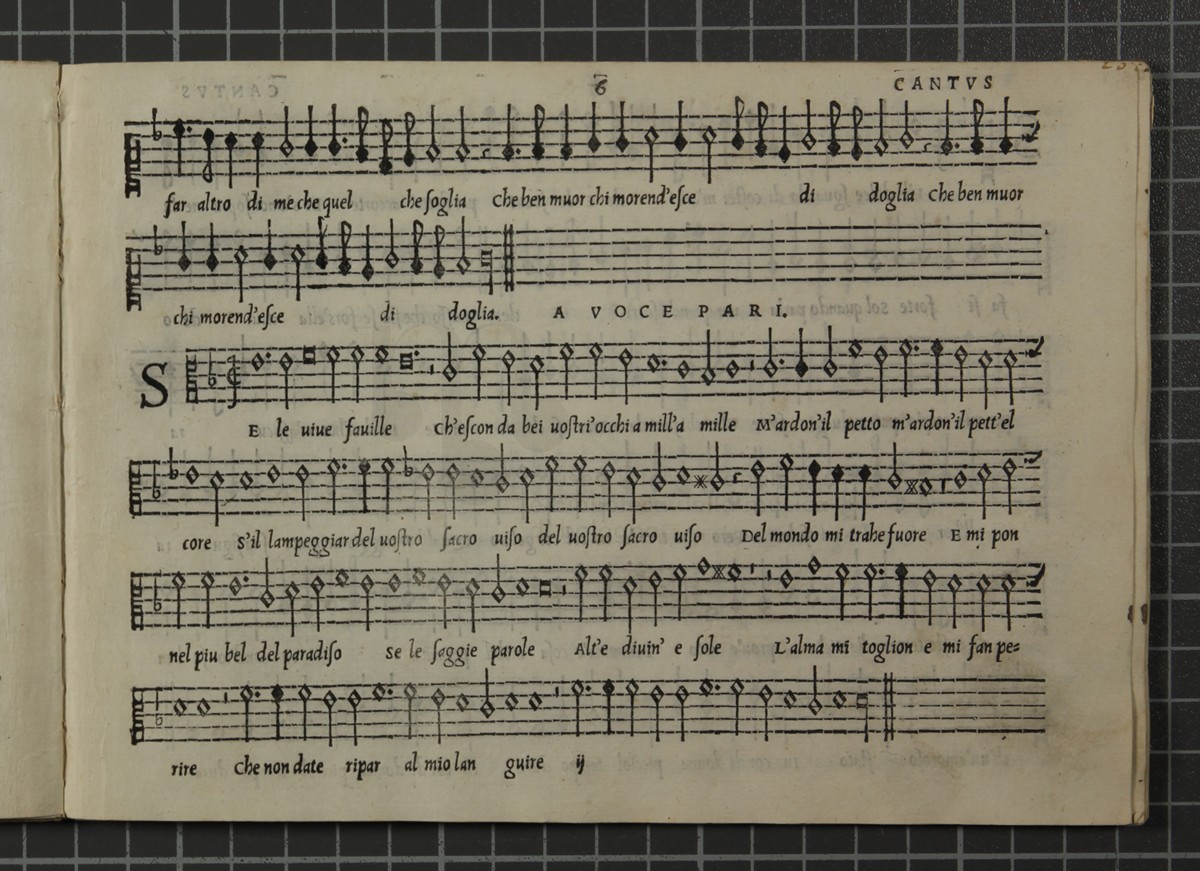 6 CANTVS
far altro di me che quel che ſoglia che ben muor chi morend'eſce di doglia che ben muor
chi morend'eſce di doglia. A VOCE PARI.
S E le uiue fauille ch'eſcon da bei uoſtri'occhi a mill'a mille M'ardon'il petto m'ardon'il pett'el
core S'il lampeggiar del uoſtro ſacro uiſo del uoſtro ſacro uiſo Del mondo mi trahe fuore E mi pon
nel piu bel del paradiſo Se le ſaggie parole Alt'e diuin' e ſole L'alma mi toglion e mi fan pe=
rire Che non date ripar al mio lan guire ij